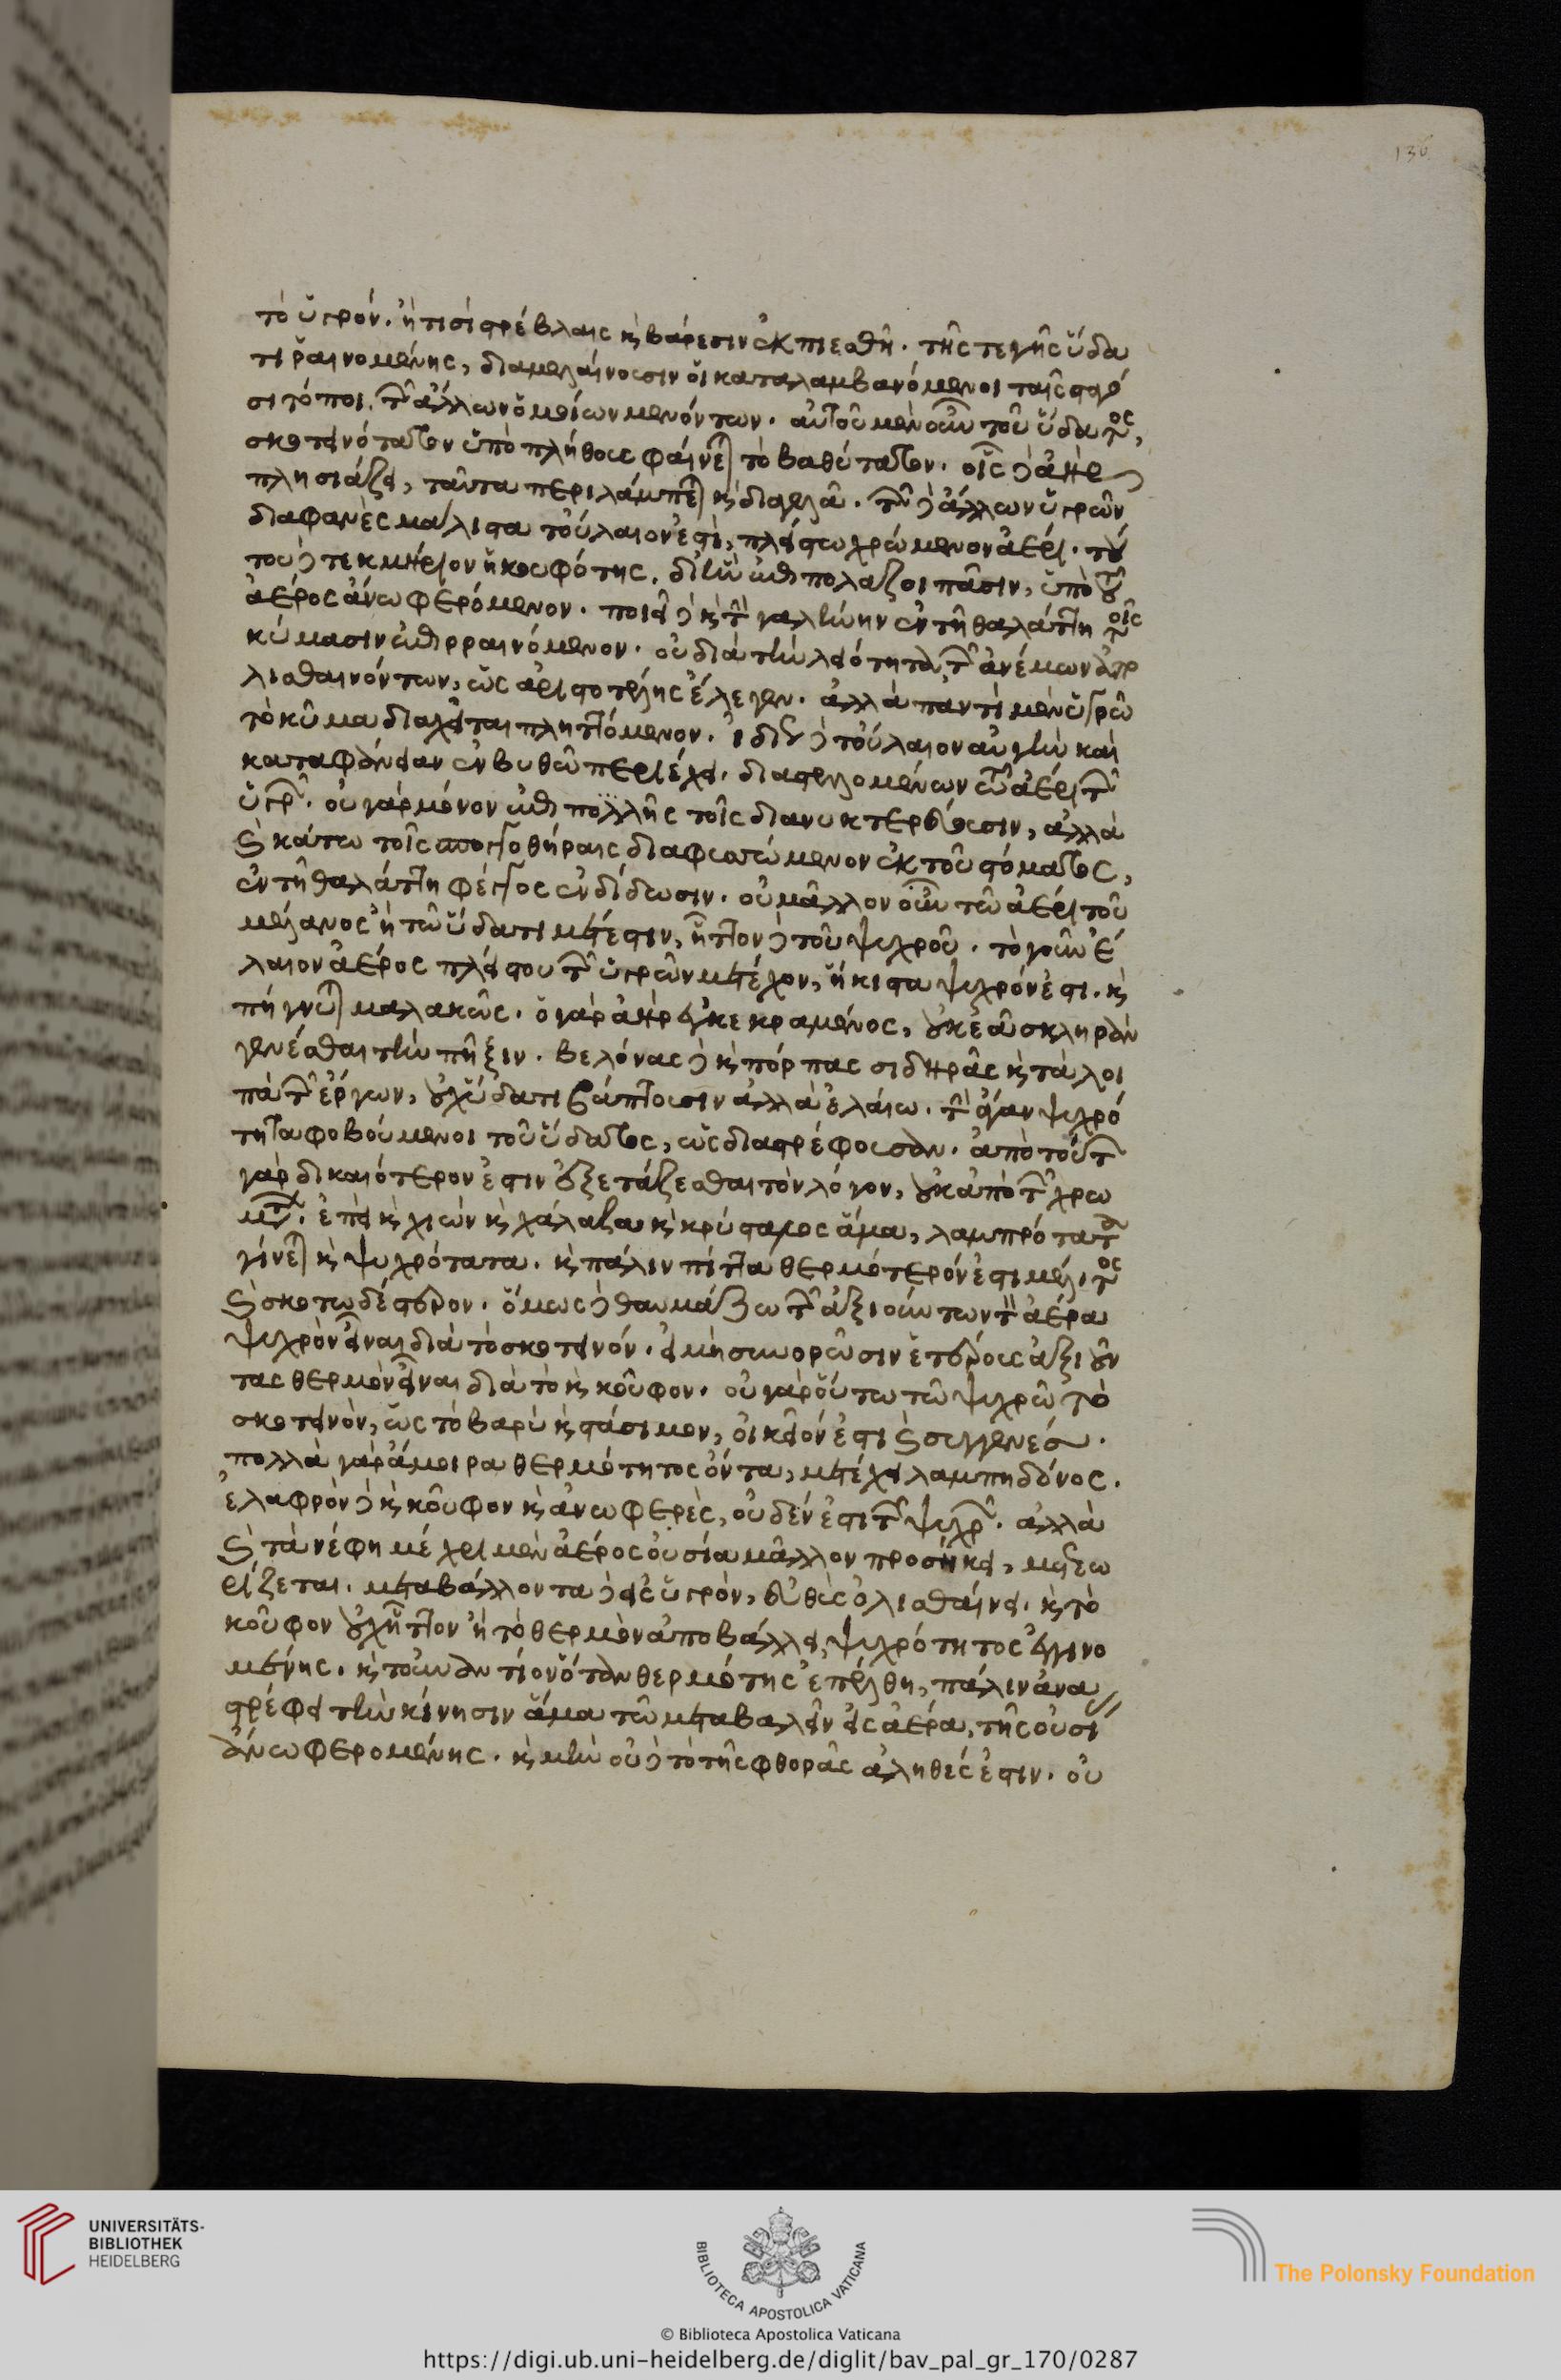 136
τὸ ὑγρόν. ἢ τισὶ στρέβλαις κ̀ βάρεσιν ἐκπιεσθῆ. τῆς τε γῆς ὕδα
τι ῥαινομένης, διαμελαίνουσιν οἱ καταλαμβανόμενοι ταῖς
σι τόποι. τῶν ἄλλων ὁμοίων μενόντων. αὐτοῦ μὲν οὖν τοῦ ὕδατος,
σκοτεινότατον ὑπὸ πλήθους φαίνεται τὸ βαθύτατον. οἷς δὲ ἀὴρ
πλησιάζει, ταῦτα περιλάμπεται κ̀ διαγελᾶ. τῶν δὲ ἄλλων ὑγρῶν
διαφανὲς μάλιστα τοὔλαιόν ἐστι, πλείστω χρώμενον ἀέρι. τού
του δὲ τεκμήριον ἡ κουφότης, δι' ἣν ἐπιπολάζει πᾶσιν, ὑπὸ τοῦ
ἀέρος ἄνω φερόμενον. ποιεῖ δὲ κ̀ τὴν γαλήνην ἐν τῆ θαλάττη τοῖς
κύμασιν ἐπιρραινόμενον. οὐ διὰ τὴν λειότητα, τῶν ἀνέμων ἀπο
λισθαινόντων, ὡς ἀριστοτέλης ἔλεγεν. ἀλλὰ παντὶ μὲν ὑγρῶ
τὸ κῦμα διαχεῖται πληττόμενον. ἰδίως δὲ τοὔλαιον αὐγὴν καὶ
καταφάνειαν ἐν βυθῶ περιέχει. διαστελλομένων τῶ ἀέρι τῶν
ὑγρῶν. οὐ γὰρ μόνον ἐπιπολῆς τοῖς διανυκτερεύουσιν, ἀλλὰ
κ̀ κάτω τοῖς σπογγοθήραις διαφυσώμενον ἐκ τοῦ στόματος,
ἐν τῆ θαλάττη φέγγος ἐνδίδωσιν. οὐ μᾶλλον οὖν τῶ ἀέρι τοῦ
μέλανος ἢ τῶ ὕδατι μέτεστιν, ἧττον δὲ τοῦ ψυχροῦ. τὸ γοῦν ἔ
λαιον ἀέρος πλείστου τῶν ὑγρῶν μετέχον, ἥκιστα ψυχρόν ἐστι. κ̀
πήγνυται μαλακῶς. ὁ γὰρ ἀὴρ ἐγκεκραμένος, οὐκ ἐᾶ σκληρὰν
γενέσθαι τὴν πῆξιν. βελόνας δὲ κ̀ πόρπας σιδηρᾶς κ̀ τὰ λοι
πὰ τῶν ἔργων, οὐχ ὕδατι βάπτουσιν ἀλλὰ ἐλαίω. τὴν ἄγαν ψυχρό
τητα φοβούμενοι τοῦ ὕδατος, ὡς διαστρέφουσαν. ἀπὸ τούτων
γὰρ δικαιότερόν ἐστιν ἐξετάζεσθαι τὸν λόγον, οὐκ ἀπὸ τῶν χρω
μάτων. ἐπεὶ κ̀ χιὼν κ̀ χάλαζα κ̀ κρύσταλος ἅμα, λαμπρότατα
γίνεται κ̀ ψυχρότατα. κ̀ πάλιν πίττα θερμότερόν ἐστι μέλιτος
κ̀ σκοτωδέστερον. ὅμως δὲ θαυμάζω τῶν ἀξιούντων τὸν ἀέρα
ψυχρὸν εἶναι διὰ τὸ σκοτεινόν. εἰ μὴ συνορῶσιν ἑτέρους ἀξιοῦν
τας θερμὸν εἶναι διὰ τὸ κ̀ κοῦφον. οὐ γὰρ οὕτω τῶ ψυχρῶ τὸ
σκοτεινὸν, ὡς τὸ βαρὺ κ̀ στάσιμον, οἰκεῖόν ἐστι κ̀ συγγενές.
πολλὰ γὰρ ἄμοιρα θερμότητος ὄντα, μετέχει λαμπηδόνος.
ἐλαφρὸν δὲ κ̀ κοῦφον κ̀ ἀνωφερὲς, οὐδέν ἐστι τῶν ψυχρῶν. ἀλλὰ
κ̀ τὰ νέφη μέχρι μὲν ἀέρος οὐσία μᾶλλον προσήκει, μετεω
ρίζεται. μεταβάλλοντα δὲ εἰς ὑγρὸν, εὐθὺς ὀλισθαίνει. κ̀ τὸ
κοῦφον οὐχ ἧττον ἢ τὸ θερμὸν ἀποβάλλει, ψυχρότητος ἐγγινο
μένης. κ̀ τοὐναντίον ὅταν θερμότης ἐπέλθη, πάλιν ἀνα
στρέφει τὴν κίνησιν ἅμα τῶ μεταβαλεῖν εἰς ἀέρα, τῆς οὐσί
ἄνω φερομένης. κ̀ μὴν οὐδὲ τὸ τῆς φθορᾶς ἀληθές ἐστιν. οὐ
UNIVERSITÄTS-
BIBLIOTHEK
HEIDELBERG
BIBLIOTECA APOSTOLICA VATICANA
The Polonsky Foundation
© Biblioteca Apostolica Vaticana
https://digi.ub.uni-heidelberg.de/diglit/bav_pal_gr_170/0287